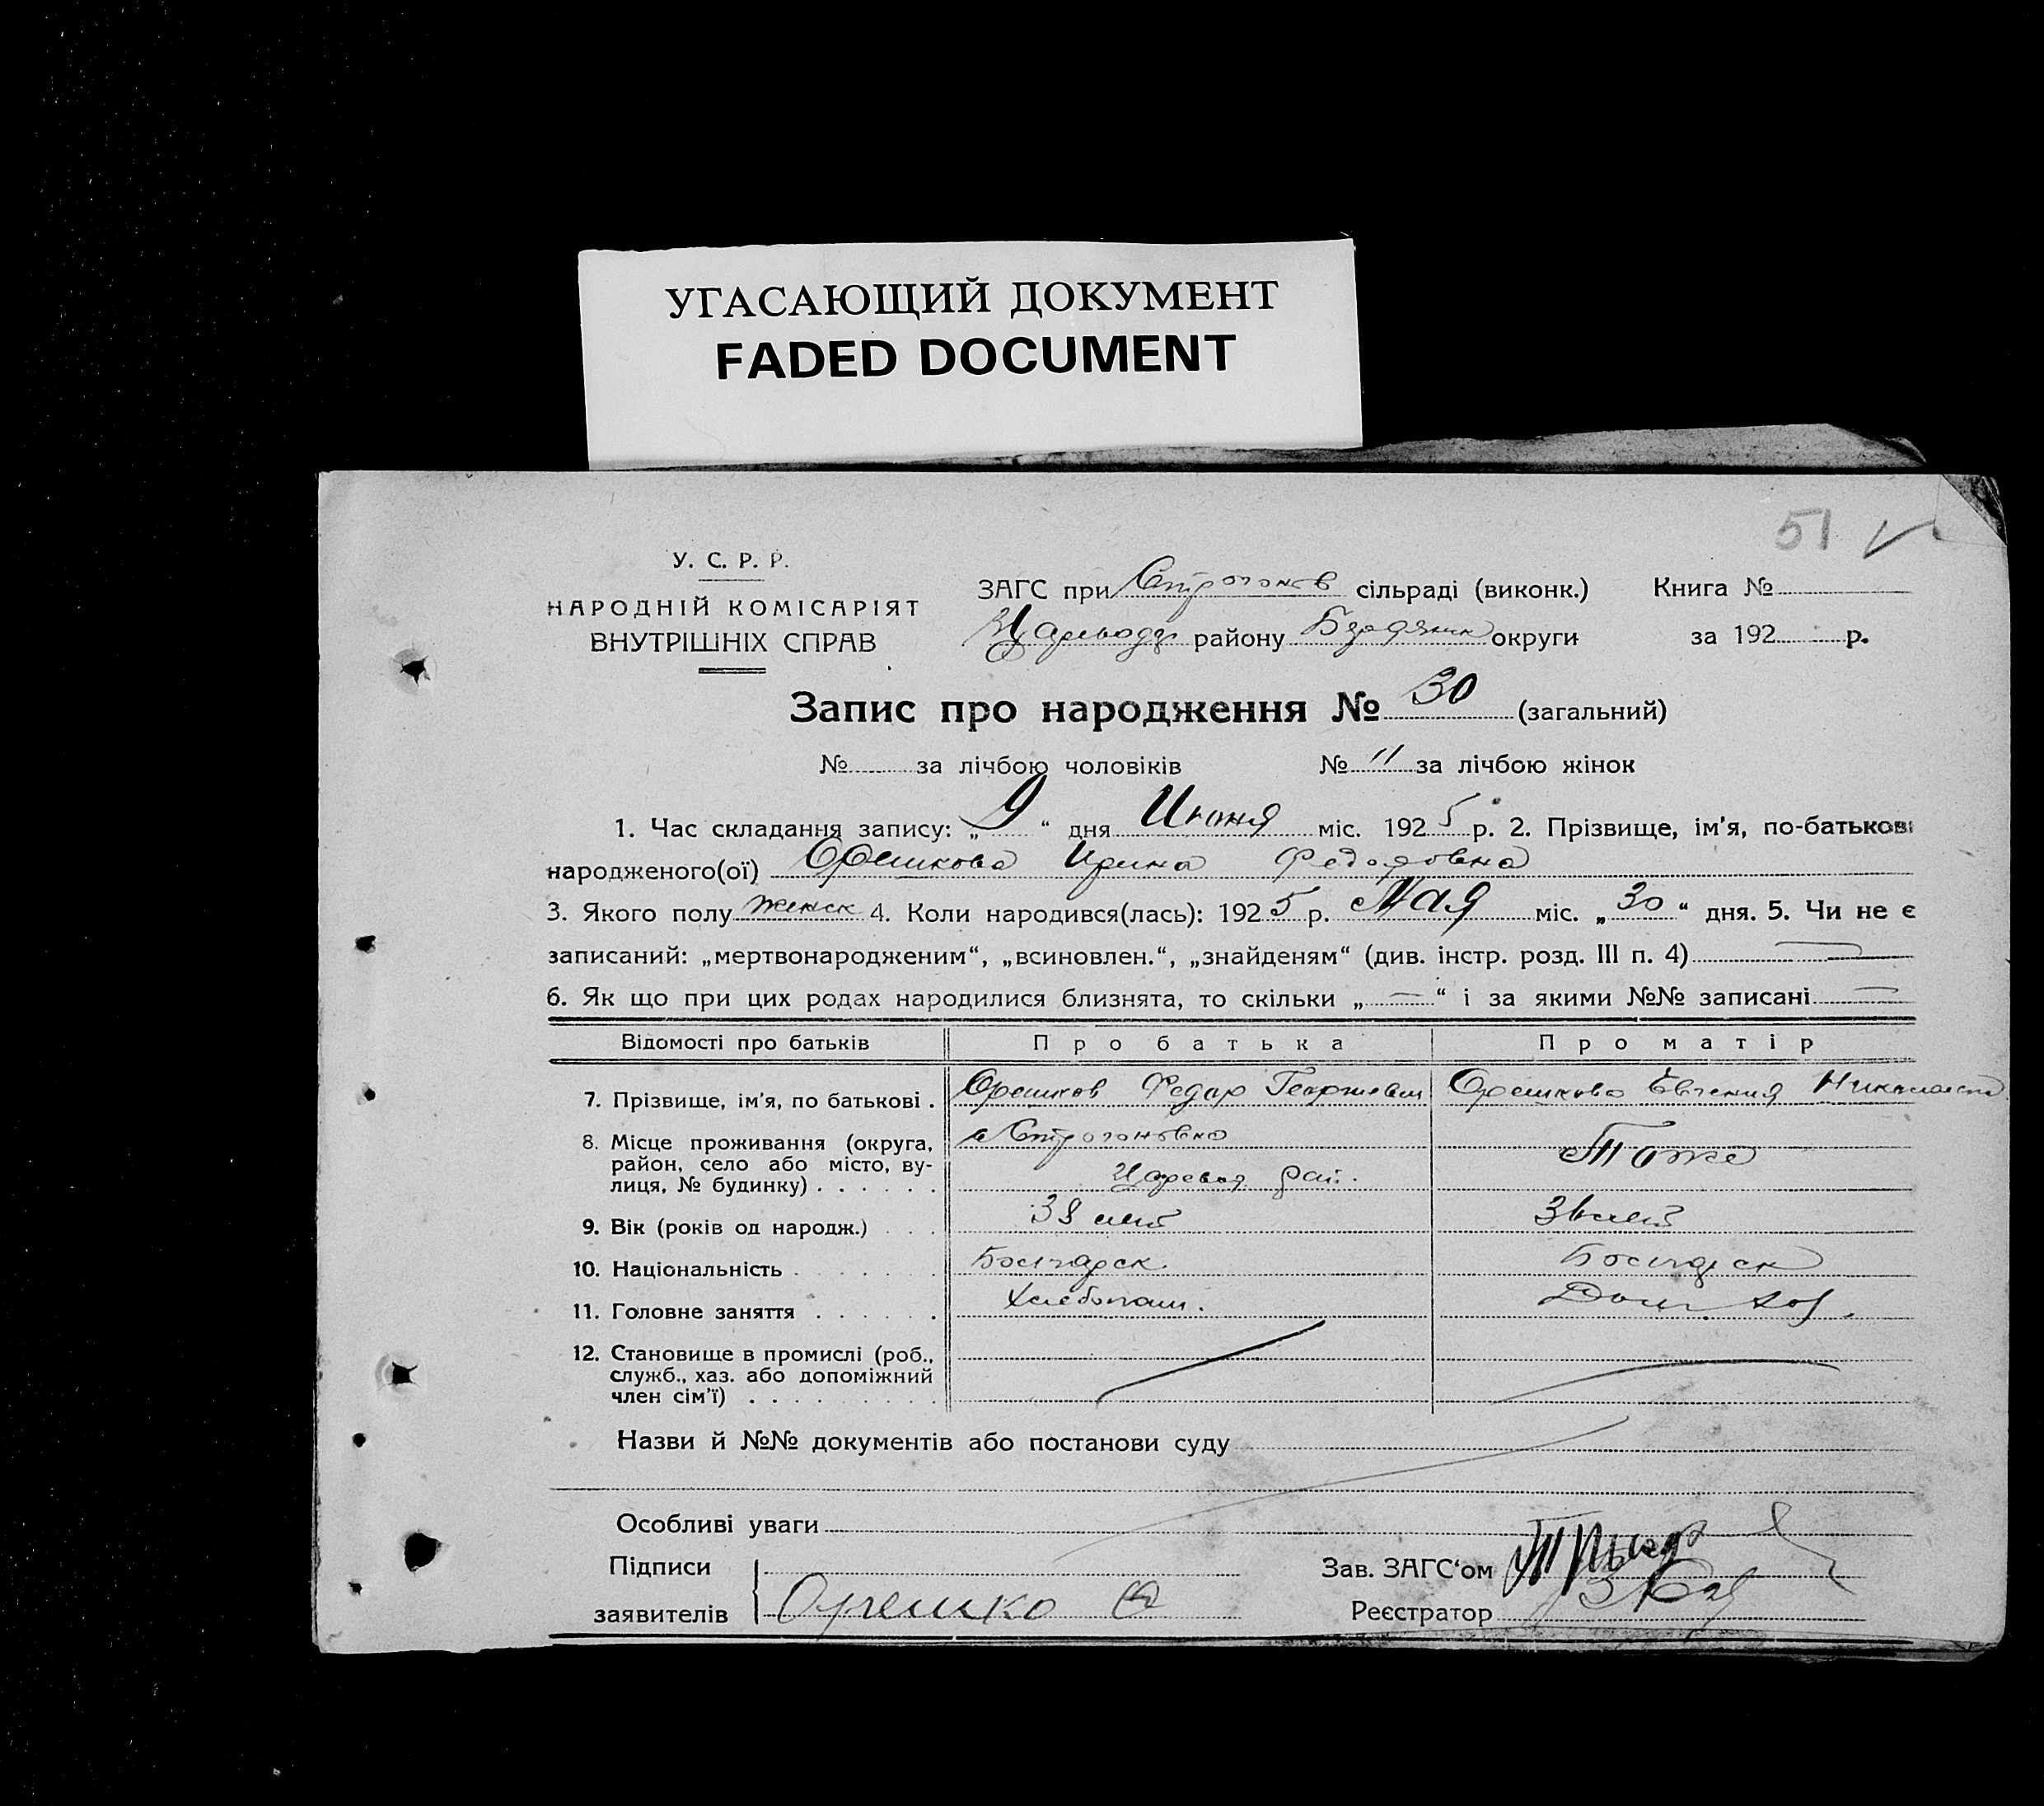 УГАСАЮЩИЙ ДОКУМЕНТ
FADED DOCUMENT
51
У. С. Р. Р.
НАРОДНІЙ КОМІСАРІЯТ
ВНУТРІШНІХ СПРАВ
ЗАГС при Строгонов сільраді (виконк.) Книга №
району Бердянск округи за 192 р.
Запис про народження № 30 (загальний)
№ за лічбою чоловіків № 11 за лічбою жінок
1. Час складання запису: „9“ дня Июня міс. 1925 р. 2. Прізвище, ім'я, по-батькові
народженого(ої) Орешкова Ирина Федоровна
3. Якого полу женск 4. Коли народився(лась): 1925 р. Мая міс. „30“ дня. 5. Чи не є
записаний: „мертвонародженим“, „всиновлен.“, „знайденям“ (див. інстр. розд. III п. 4) —
6. Як що при цих родах народилися близнята, то скільки „—“ і за якими №№ записані —
Відомості про батьків Про батька Про матір
7. Прізвище, ім'я, по батькові . Орешков Федор Георгиевич Орешкова Евгения Николаевна
8. Місце проживання (округа, с Строгоновка
район, село або місто, ву- Тоже
лиця, № будинку) . . . . . . Царевод рай.
9. Вік (років од народж.) . . . 38 лет 36 лет
10. Національність . . . . . . . Болгарск. Болгарск
11. Головне заняття . . . . . . Хлебопаш. Дом хоз.
12. Становище в промислі (роб.,
служб., хаз. або допоміжний
член сім'ї) . . . . . . . . .
Назви й №№ документів або постанови суду
Особливі уваги
Підписи
Зав. ЗАГС'ом
заявителів Орешко
Реєстратор